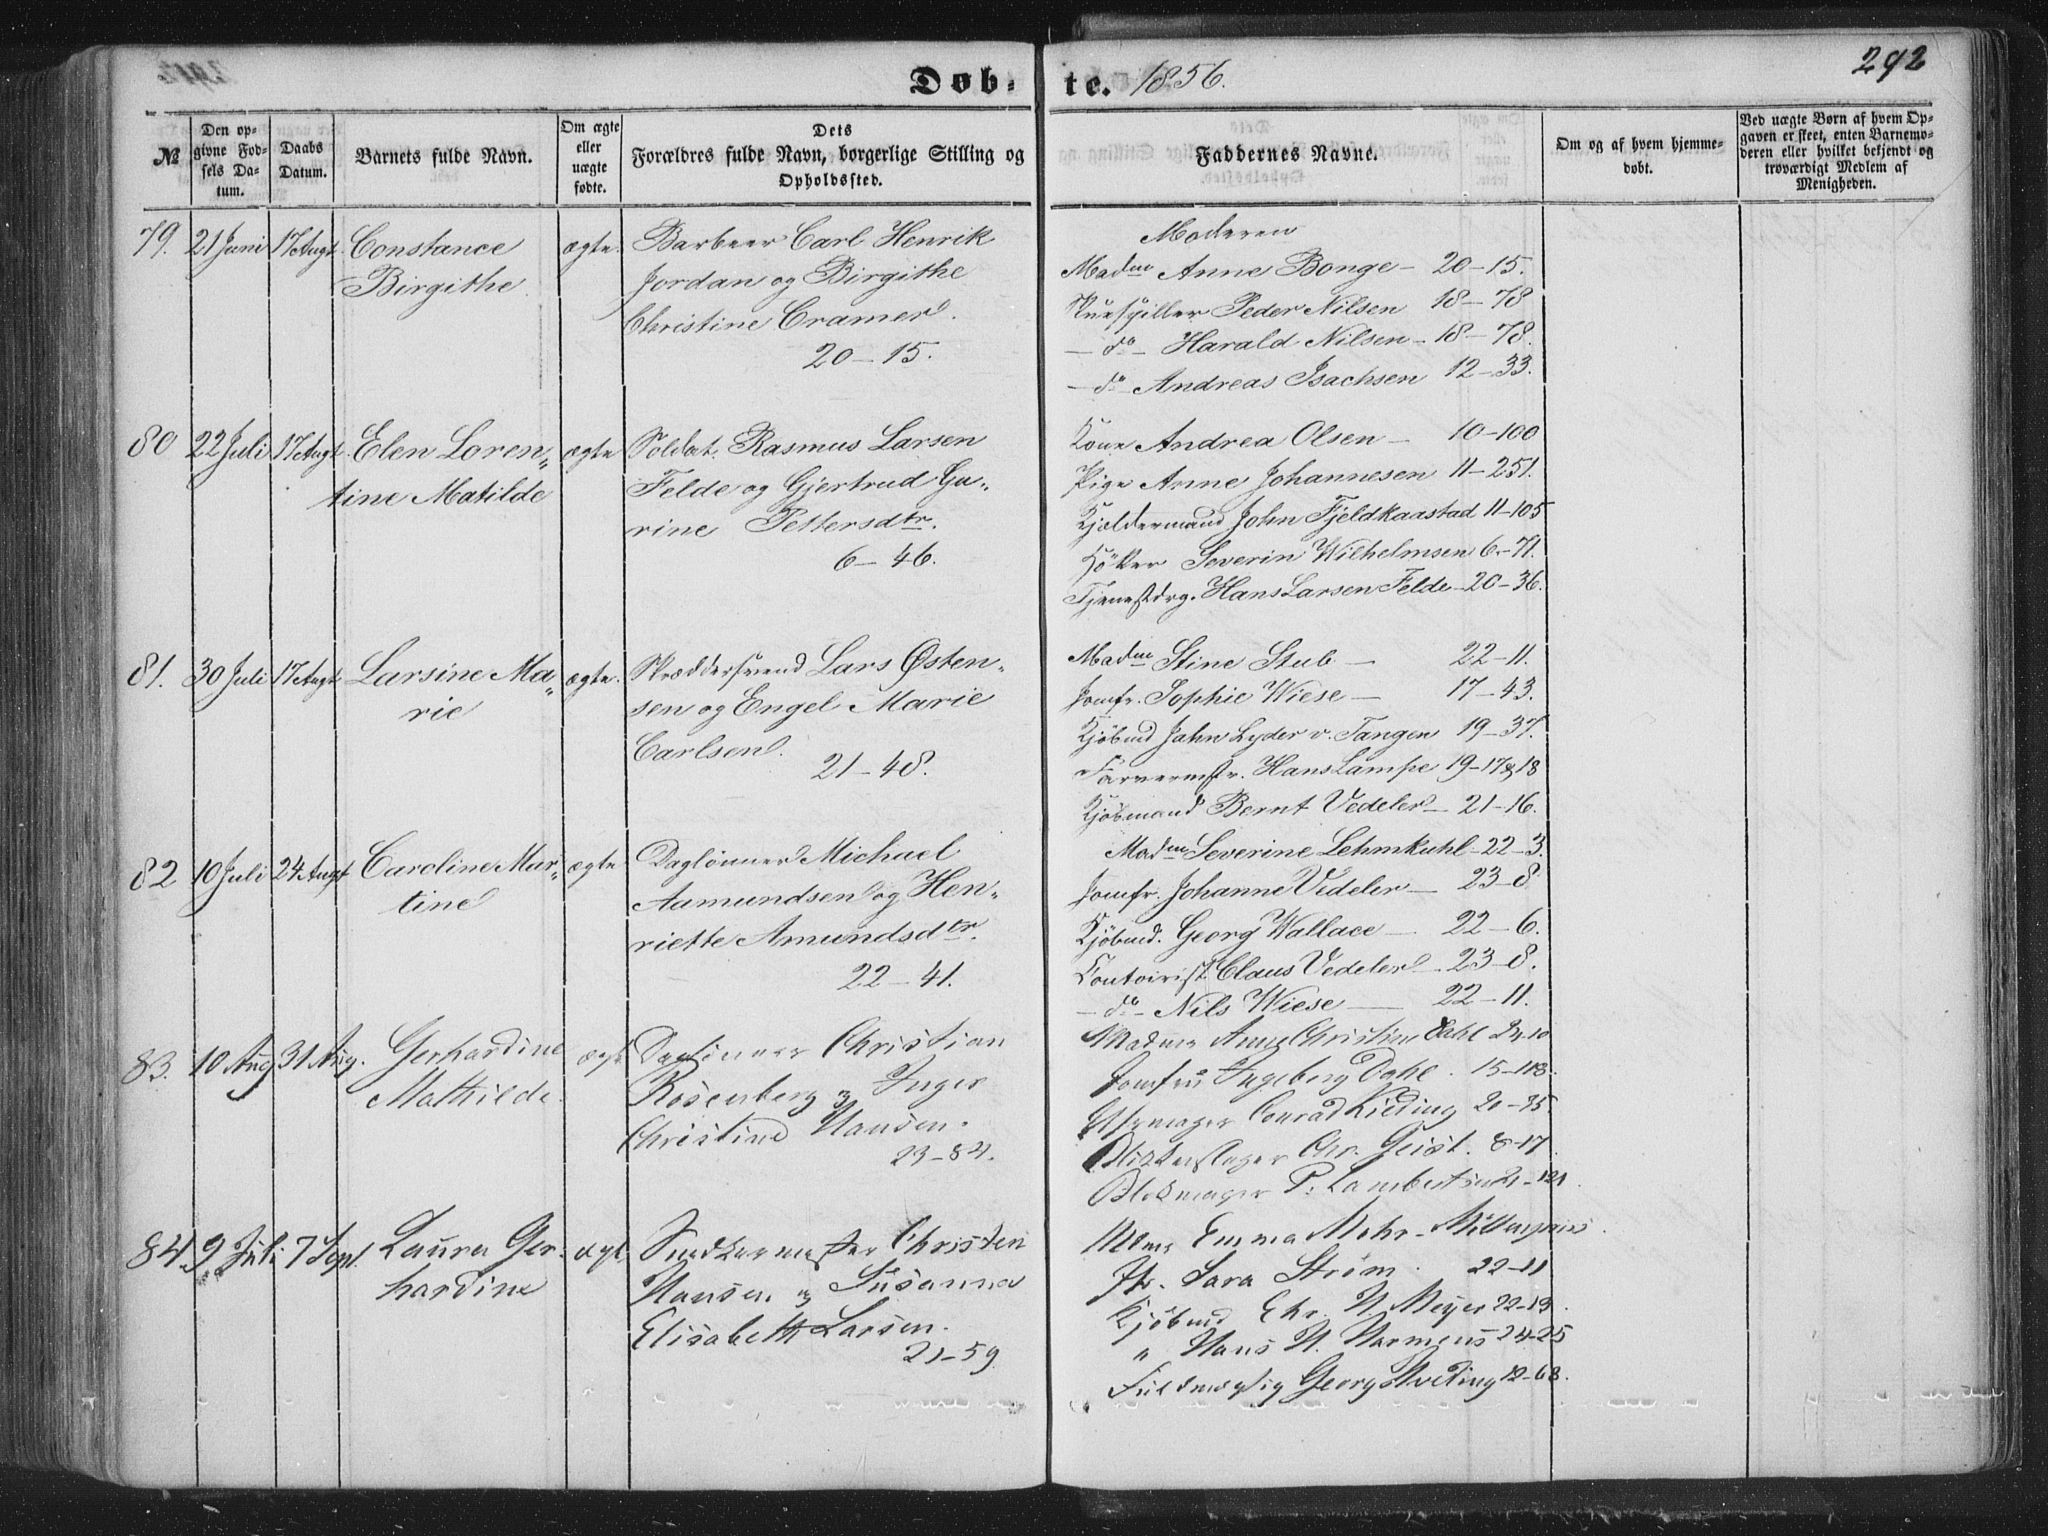 292
Døb-te. 1856.
№
Den opgivne Fødsels Datum.
Daabs Datum.
Barnets fulde Navn.
Om ægte eller uægte fødte.
Dets Forældres fulde Navn, borgerlige Stilling og Opholdssted.
Faddernes Navne.
Om og af hvem hjemmedøbt.
Ved uægte Børn af hvem Opgaven er skeet, enten Barnemoderen eller hvilket bekjendt og troværdigt Medlem af Menigheden.
79. 21 Juni 17 Augt. Constance Birgithe ægte.
Barbeer Carl Henrik
Jordan og Birgithe
Christine Cramer.
20-15.
Moderen
Madm Anne Bonge - 20-15.
Skuespiller Peder Nilsen 18-78
- do - Harald Nilsen - 18-78.
- do - Andreas Isachsen 12-33.
80 22 Juli 17 Augt. Elen Loren„ ægte
tine Matilde
Soldat. Rasmus Larsen
Felde og Gjertrud Gu„
rine Pettersdtr.
6-46.
Kone Andrea Olsen - 10-100
Pige Anne Johannesen 11-251.
Kjældermand John Fjeldkaastad 11-105
Høker Severin Wilhelmsen 6-71.
Tjenestdrg. Hans Larsen Felde - 20-36.
81. 30 Juli 17 Augt. Larsine Ma„ ægte.
rie
Skræddersvend Lars Østen„
sen og Engel Marie
Carlsen.
21-48.
Madm Stine Stub - 22-11.
Jomfr. Sophie Wiese - 17-43.
Kjøbmd Jahn Lyder v. Tangen 19-37.
Farvermstr. Hans Lampe 19-17&18
Kjøbmand Bernt Vedeler - 21-16.
82 10 Juli 24 Augt Caroline Mar„ ægte
tine
Daglønner Michael
Aamundsen og Hen„
riette Amundsdtr.
22-41.
Madm Severine Lehmkuhl - 22-3.
Jomfr. Johanne Vedeler - 23-8
Kjøbmd. Georg Wallace - 22-6.
Contoirist. Claus Vedeler - 23-8.
- do - Nils Wiese - 22-11.
83. 10 Aug 31 Aug. Gerhardine ægte
Mathilde.
Daglønner Christian
Rosenberg og Inger
Christine Hansen.
23-84.
Madme Anne Christine Dahl 24-10
Jomfru Ingeborg Dahl. 15-118.
Conrad Kieding 20-35
Chr. Geist. 8-17
Blokmager P. Lambertsen 21-121.
84. 9 Juli 7 Sept. Laura Ger- ægte
hardine
Snedkermester Christen
Hansen og Susanna
Elisabeth Larsen.
21-59
Mdme Emma Mohr -
Jfr. Sara Strøm. 22-11
Kjøbmd Chr. H. Meyer 22-13.
„ Hans H. Harmens 24-25
Fuldmægtig Georg 12-68.